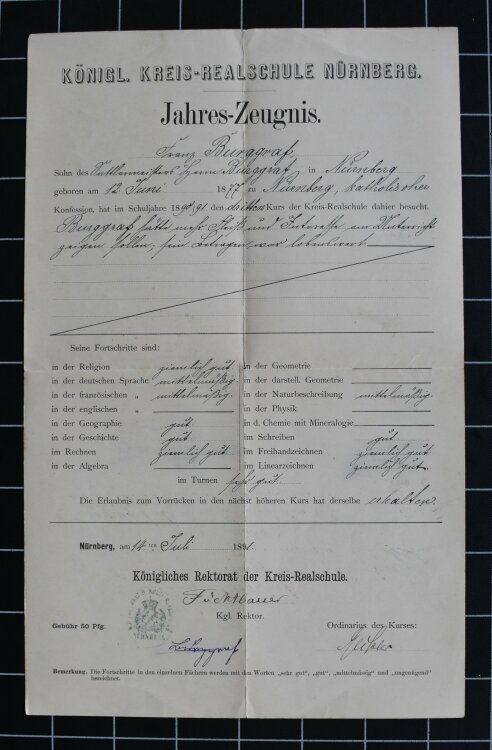 KÖNIGL. KREIS-REALSCHULE NÜRNBERG.
Jahres-Zeugnis.
Franz Burggraf,
Sohn des Sattlermeisters Herrn Burggraf in Nürnberg
geboren am 12. Juni 1877 zu Nürnberg, katholischer
Konfession, hat im Schuljahre 1890/91 den dritten Kurs der Kreis-Realschule dahier besucht.
Burggraf hätte mehr Fleiß und Interesse am Unterricht
zeigen sollen; sein Betragen war lobenswert.
Seine Fortschritte sind:
in der Religion ziemlich gut in der Geometrie
in der deutschen Sprache mittelmäßig. in der darstell. Geometrie
in der französischen „ mittelmäßig. in der Naturbeschreibung mittelmäßig.
in der englischen „ in der Physik
in der Geographie gut in d. Chemie mit Mineralogie
in der Geschichte gut im Schreiben gut
im Rechnen ziemlich gut im Freihandzeichnen ziemlich gut
in der Algebra im Linearzeichnen ziemlich gut
im Turnen sehr gut.
Die Erlaubnis zum Vorrücken in den nächst höheren Kurs hat derselbe erhalten.
Nürnberg, am 14ten Juli 1891.
Königliches Rektorat der Kreis-Realschule.
Kgl. Rektor.
Gebühr 50 Pfg. Ordinarius des Kurses:
NÜRNBERG
Burggraf
Bemerkung. Die Fortschritte in den einzelnen Fächern werden mit den Worten „sehr gut", „gut", „mittelmässig" und „ungenügend"
bezeichnet.